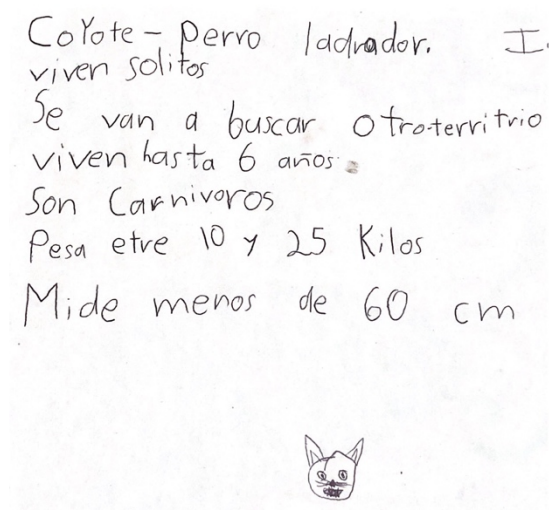 Coyote - perro ladrador. I.
viven solitos
Se van a buscar otroterritrio
viven hasta 6 años.
Son Carnivoros
Pesa etre 10 y 25 Kilos
Mide menos de 60 cm